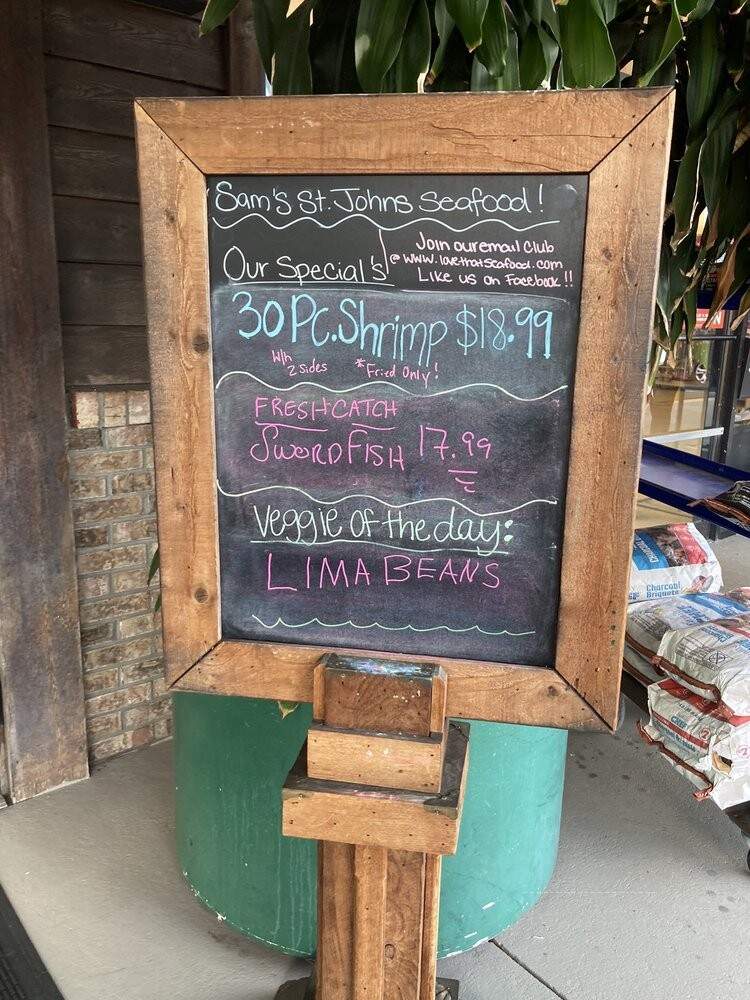 Sam's St. Johns Seafood!
Our Special's
Join our email club
@ www.lovethatseafood.com
Like us on Facebook!!
30 Pc. Shrimp $18.99
With
2 sides
*Fried Only!
FRESH CATCH
SWORDFISH 17.99
Veggie of the day:
LIMA BEANS
Charcoal
Briquets